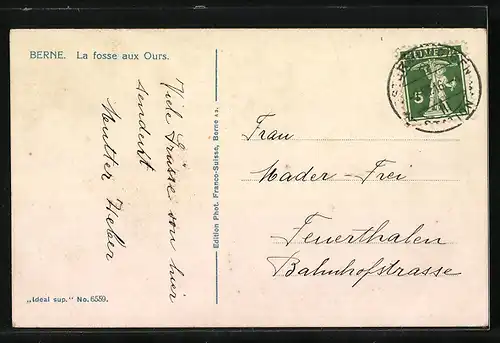 BERNE. La fosse aux Ours.
Viele Grüsse von hier
sendet
Mutter Heber
Edition Phot. Franco-Suisse, Berne
„Ideal sup.” No. 6559.
5
Frau
Mader-Frei
Feuerthalen
Bahnhofstrasse